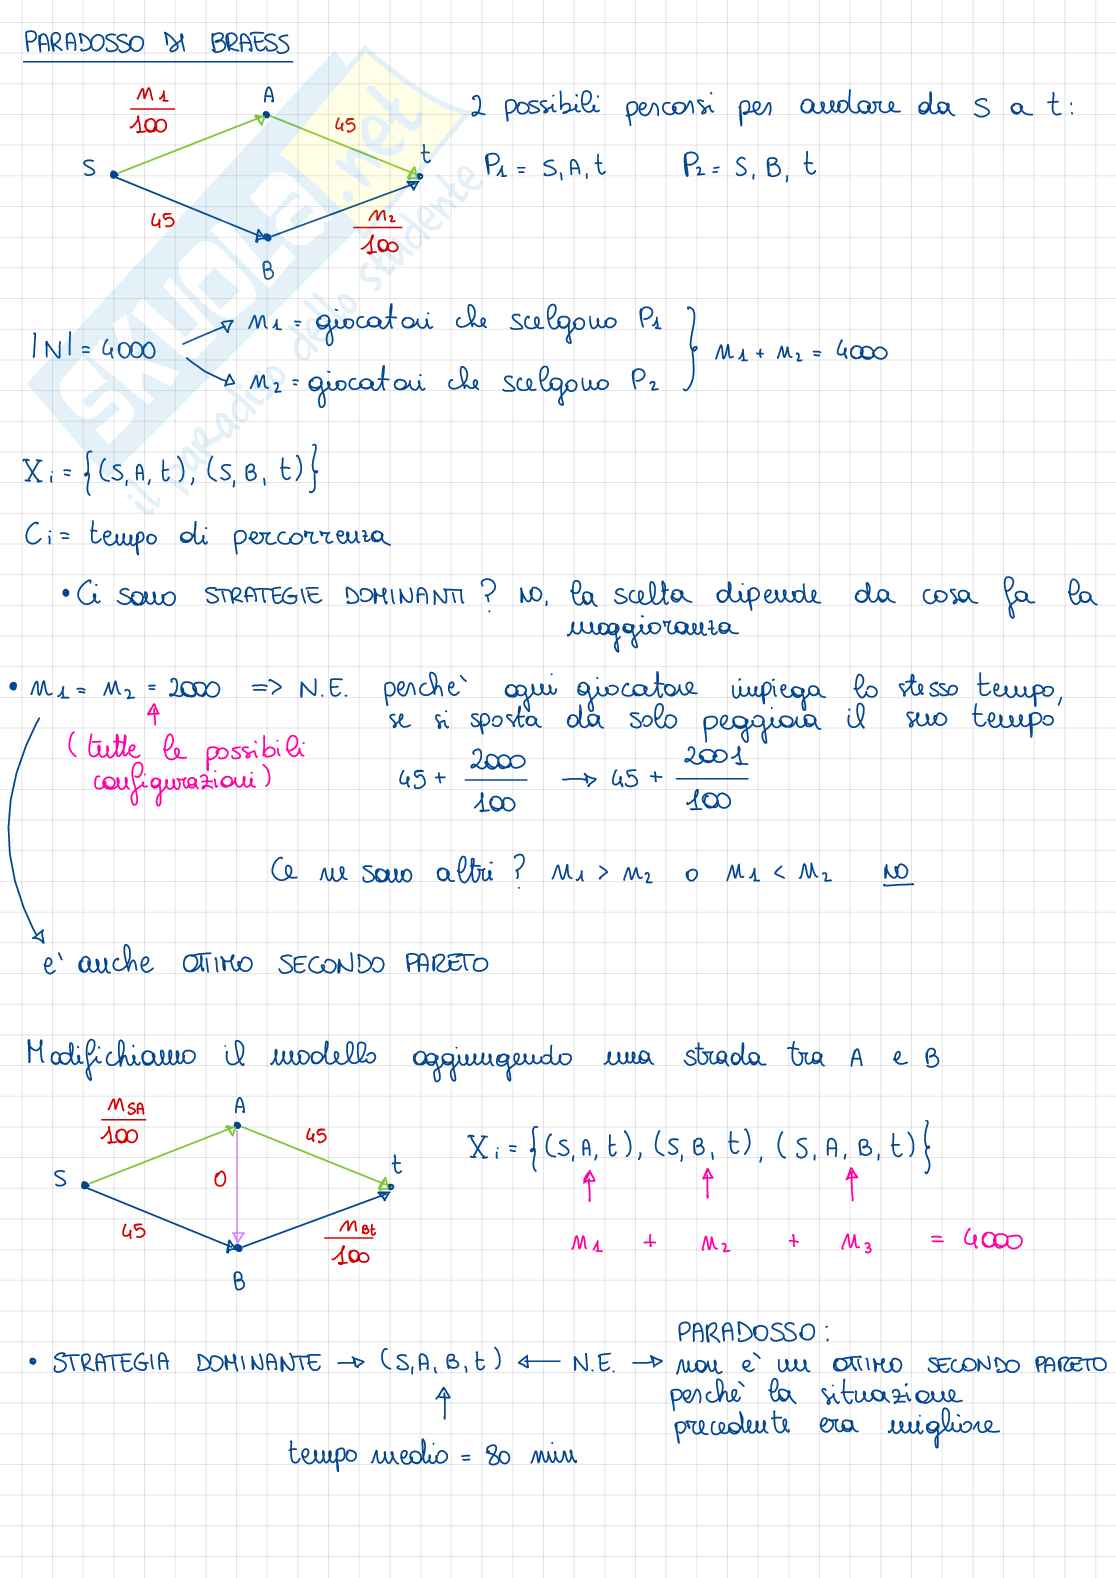 PARADOSSO DI BRAESS
M1/100
A
45
S
t
45
M2/100
B
2 possibili percorsi per andare da S a t:
P1 = S, A, t    P2 = S, B, t
SKUOLA.net
il paradiso dello studente
|N| = 4000
M1 = giocatori che scelgono P1
M2 = giocatori che scelgono P2
M1 + M2 = 4000
Xi = {(S, A, t), (S, B, t)}
Ci = tempo di percorrenza
• Ci sono STRATEGIE DOMINANTI? NO, la scelta dipende da cosa fa la
maggioranza
• M1 = M2 = 2000 => N.E. perchè ogni giocatore impiega lo stesso tempo,
se si sposta da solo peggiora il suo tempo
(tutte le possibili
configurazioni)
45 + 2000/100 → 45 + 2001/100
Ce ne sono altri? M1 > M2 o M1 < M2 NO
e' anche OTTIMO SECONDO PARETO
Modifichiamo il modello aggiungendo una strada tra A e B
MSA/100
A
45
S
0
t
45
MBt/100
B
Xi = {(S, A, t), (S, B, t), (S, A, B, t)}
M1 + M2 + M3 = 4000
PARADOSSO:
• STRATEGIA DOMINANTE → (S, A, B, t) ← N.E. → non è un OTTIMO SECONDO PARETO
perchè la situazione
precedente era migliore
tempo medio = 80 min